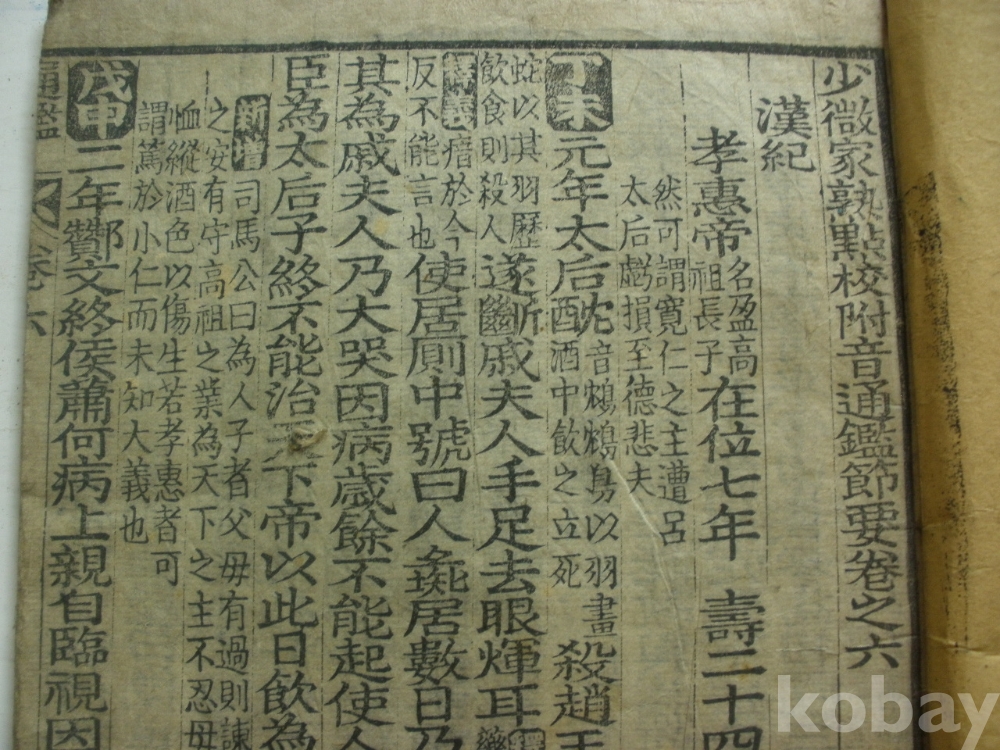 少微家熟點校附音通鑑節要卷之六
漢紀
孝惠帝名盈高祖長子在位七年壽二十四
然可謂寬仁之主遭呂
太后虧損至德悲夫
丁未元年太后酖音鴆鴆鳥以羽畫酒中飲之立死殺趙王
蛇以其羽歷飲食則殺人遂斷戚夫人手足去眼煇耳
釋義瘖於今反不能言也使居厠中號曰人彘居數日乃
其為戚夫人乃大哭因病歲餘不能起使人
臣為太后子終不能治天下帝以此日飲為
新增司馬公曰為人子者父母有過則諫
之安有守高祖之業為天下之主不忍母
恤縱酒色以傷生若孝惠者可
謂篤於小仁而未知大義也
戊申二年酇文終侯蕭何病上親自臨視因
通鑑卷六
kobay